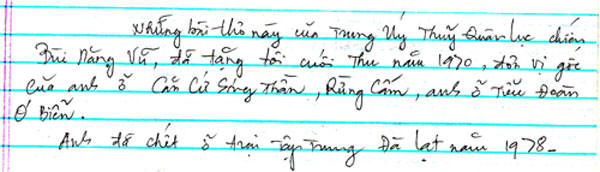 Những bài thơ này của Trung Uý Thuỷ Quân lục chiến
Bùi Năng Vũ, đã tặng tôi cuối Thu năm 1970, đơn vị gốc
của anh ở Căn Cứ Sóng Thần, Rừng Cấm, anh ở Tiểu Đoàn
Ó Biển.
Anh đã chết ở trại Tập Trung Đà lạt năm 1978-